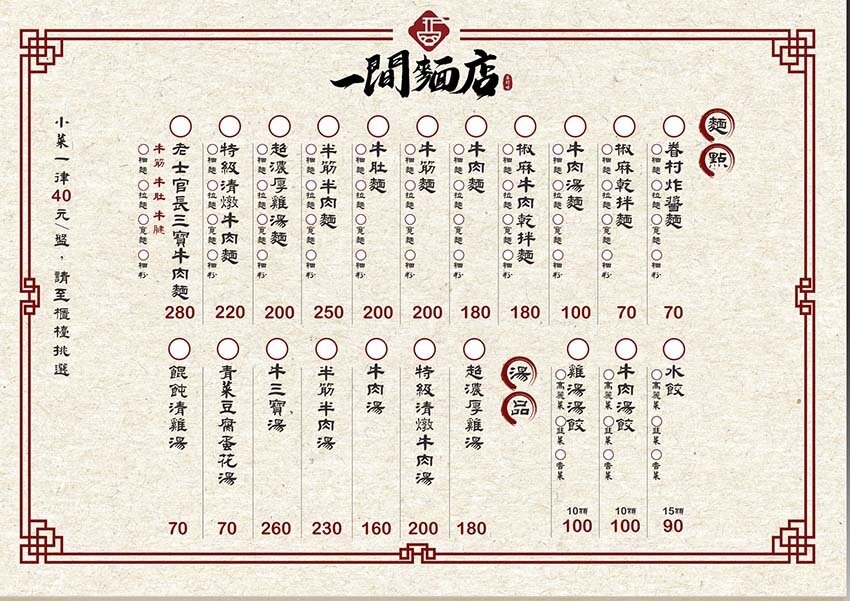 一間麵店
麵點
眷村炸醬麵
細麵 拉麵 寬麵 細粉
70
椒麻乾拌麵
細麵 拉麵 寬麵 細粉
70
牛肉湯麵
細麵 拉麵 寬麵 細粉
100
椒麻牛肉乾拌麵
細麵 拉麵 寬麵 細粉
180
牛肉麵
細麵 拉麵 寬麵 細粉
180
牛筋麵
細麵 拉麵 寬麵 細粉
200
牛肚麵
細麵 拉麵 寬麵 細粉
200
半筋半肉麵
細麵 拉麵 寬麵 細粉
250
超濃厚雞湯麵
細麵 拉麵 寬麵 細粉
200
特級清燉牛肉麵
細麵 拉麵 寬麵 細粉
220
老士官長三寶牛肉麵
牛筋 牛肚 牛腱
細麵 拉麵 寬麵 細粉
280
水餃
高麗菜 韭菜 香菜
15顆
90
牛肉湯餃
高麗菜 韭菜 香菜
10顆
100
雞湯湯餃
高麗菜 韭菜 香菜
10顆
100
湯品
超濃厚雞湯
180
特級清燉牛肉湯
200
牛肉湯
160
半筋半肉湯
230
牛三寶湯
260
青菜豆腐蛋花湯
70
餛飩清雞湯
70
小菜一律40元/盤，請至櫃檯挑選